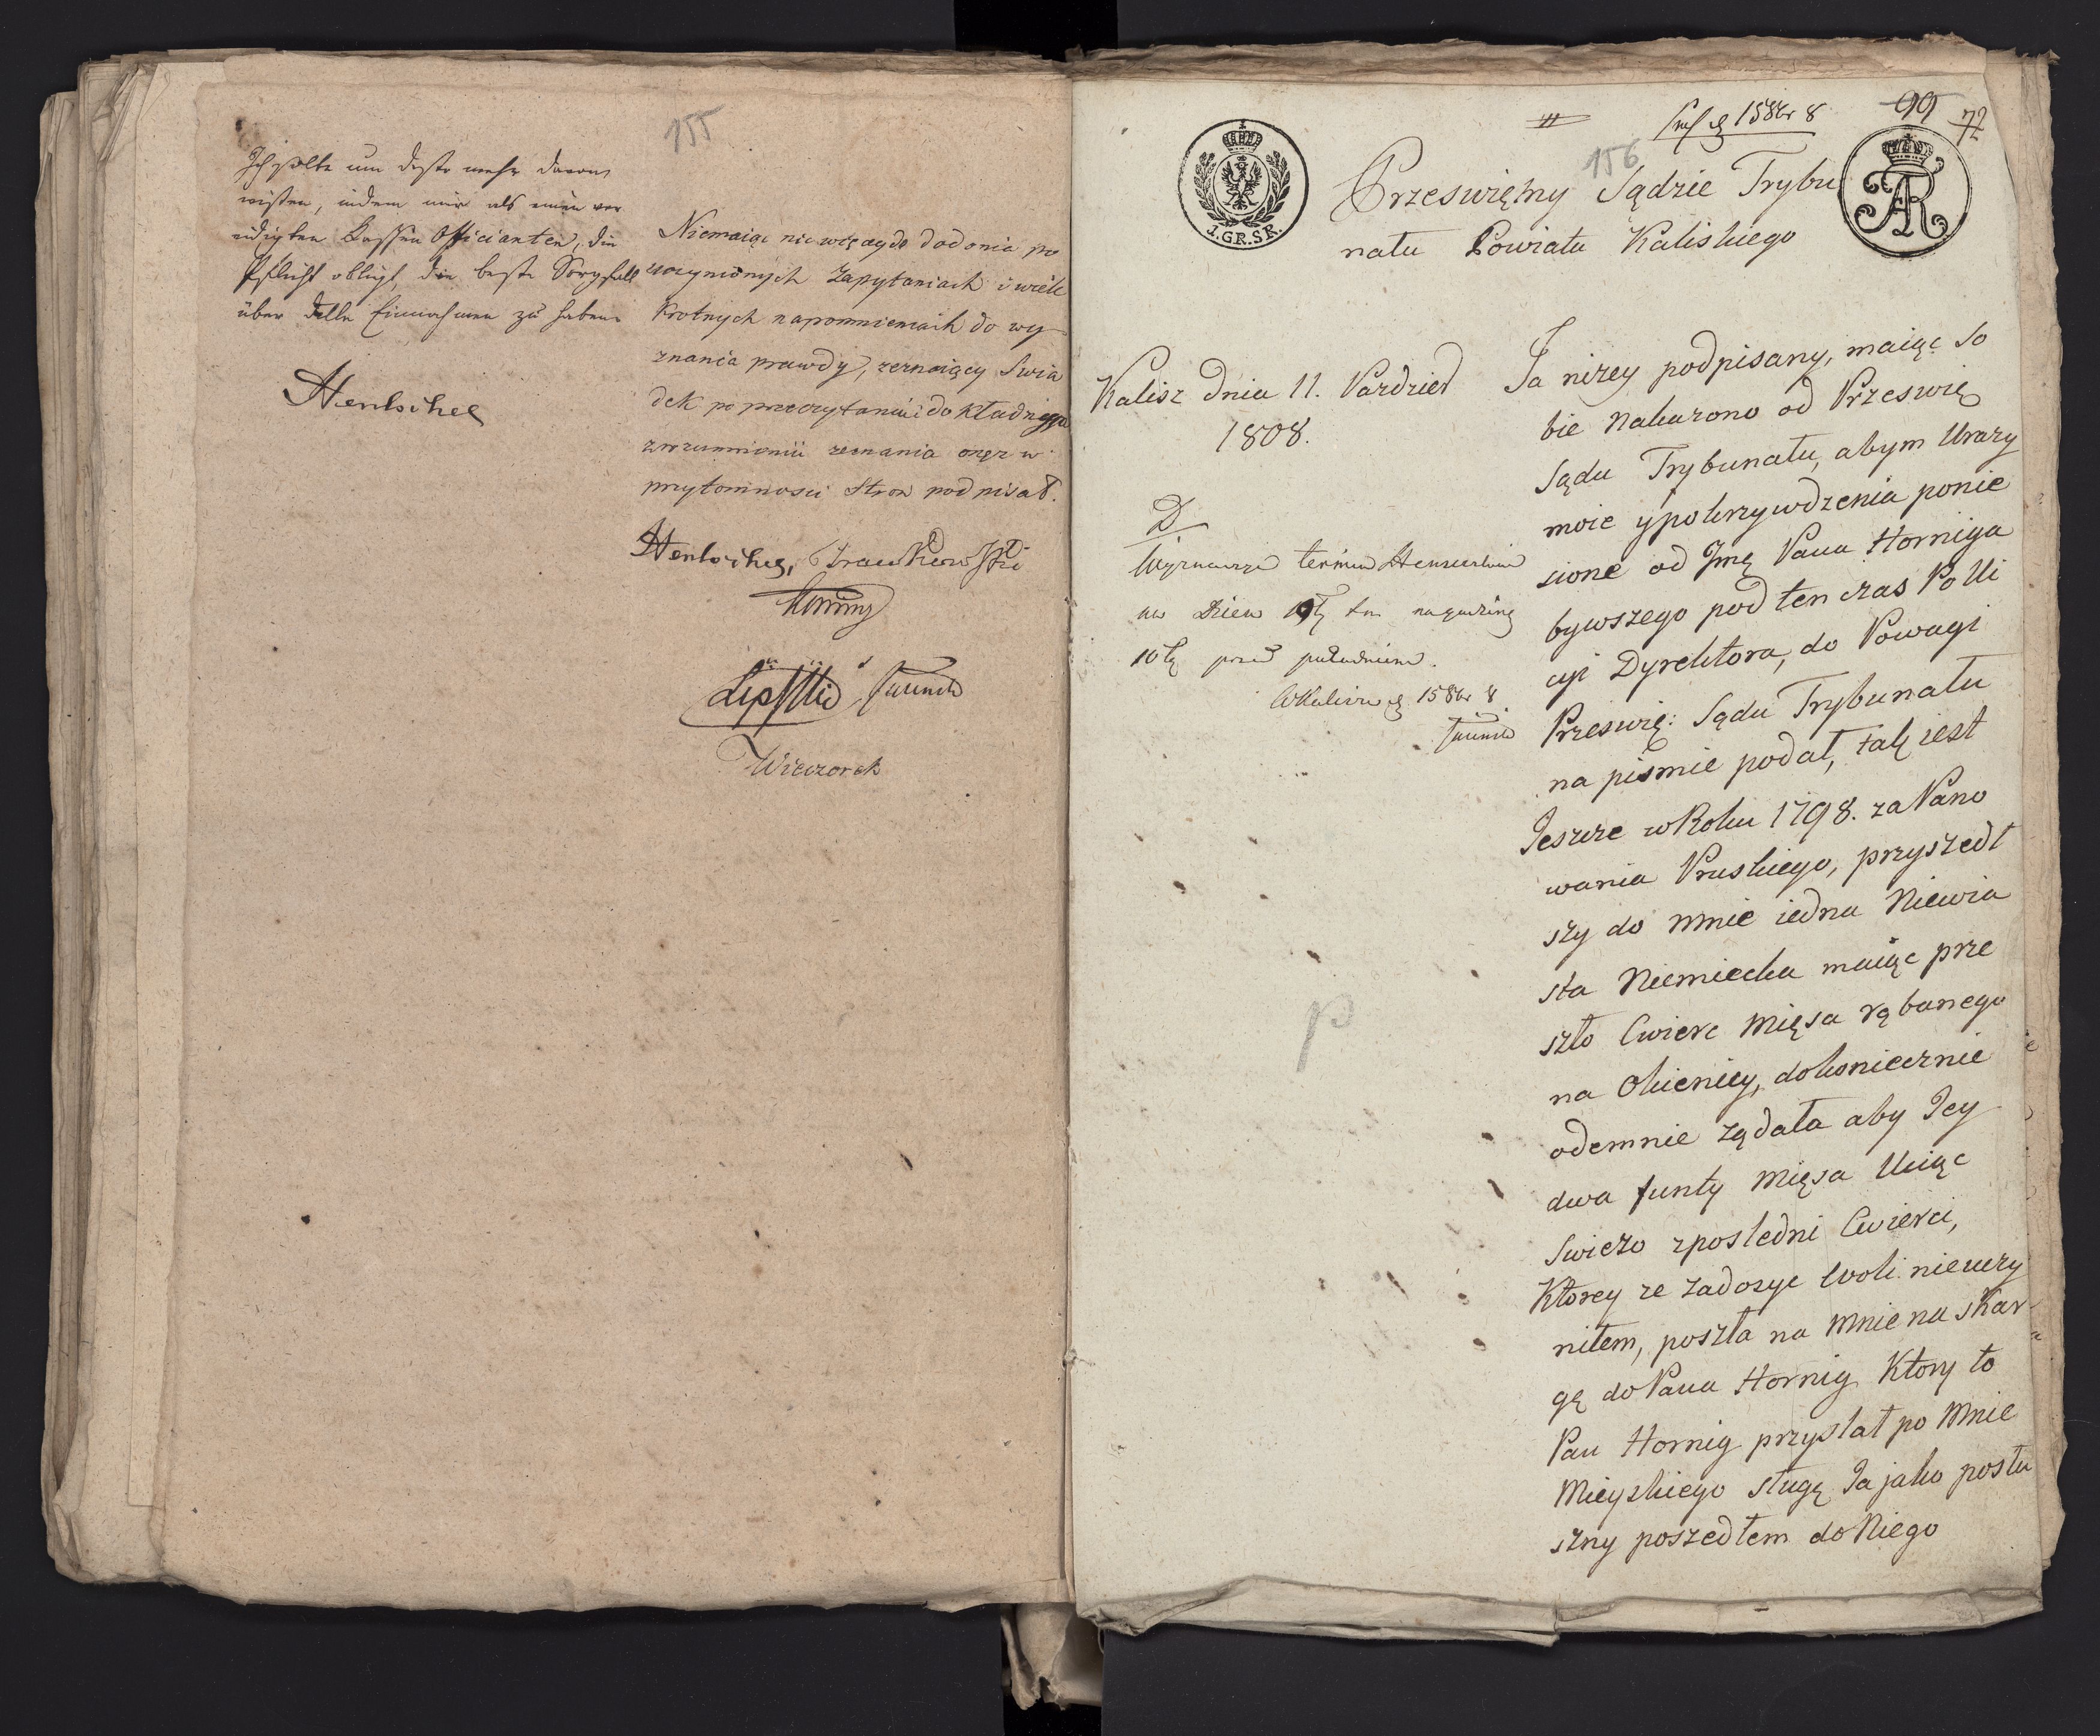 155
Ich sollte um desto mehr davon
wissen, indem mir als einen ver
eidigten Cassen Officianten, die
Pflicht obligt, die beste Sorgfalt
über Einnahmen zu haben
Hentschel
Niemaiąc nic więcey do dodania po
uczynionych zapytaniach i wielo
krotnych napomnieniach do wy
znania prawdy, zeznaiący Swia
dek po przeczytaniu i dokładnym
zrozumieniu zeznania onez w
przytomnosci Stron podpisał.
Hentschel,
Hornig
Lipski
Wieczorek
99
72
156
1.GR.SR.
AR
Przeswiętny Sądzie Trybu
nału Powiatu Kaliskiego
Kalisz Dnia 11. Pazdzier
1808.
D
Wyznacza termin
na Dzien tm na godzinę
10tą przed południem.
w Kaliszu d. 15 8br 8
Ja nizey podpisany, maiąc So
bie Nakazono od Przeswię
Sądu Trybunału, abym Urazy
moie y pokrzywdzenia ponie
sione od Jmę Pana Horniga
bywszego pod ten czas Polli
cyi Dyrektora, do Powagi
Przeswię: Sądu Trybunału
na pismie podał, tak iest
Jeszcze w Roku 1798. za Pano
wania Pruskiego, przyszedł
szy do mnie iedna Niewia
sta Niemiecka maiąc prze
szło Cwierc Mięsa rąbanego
na Okienicy, dokoniecznie
odemnie ządała aby Jey
dwa funty Mięsa Uciąc
Swiezo z posledni Cwierci,
Ktorey ze zadosyc woli nieuczy
niłem, poszła na mnie na skar-
gę do Pana Hornig Ktory to
Pan Hornig przysłał po Mnie
Mieyskiego sługę Ja jako posłu
szny poszedłem do Niego